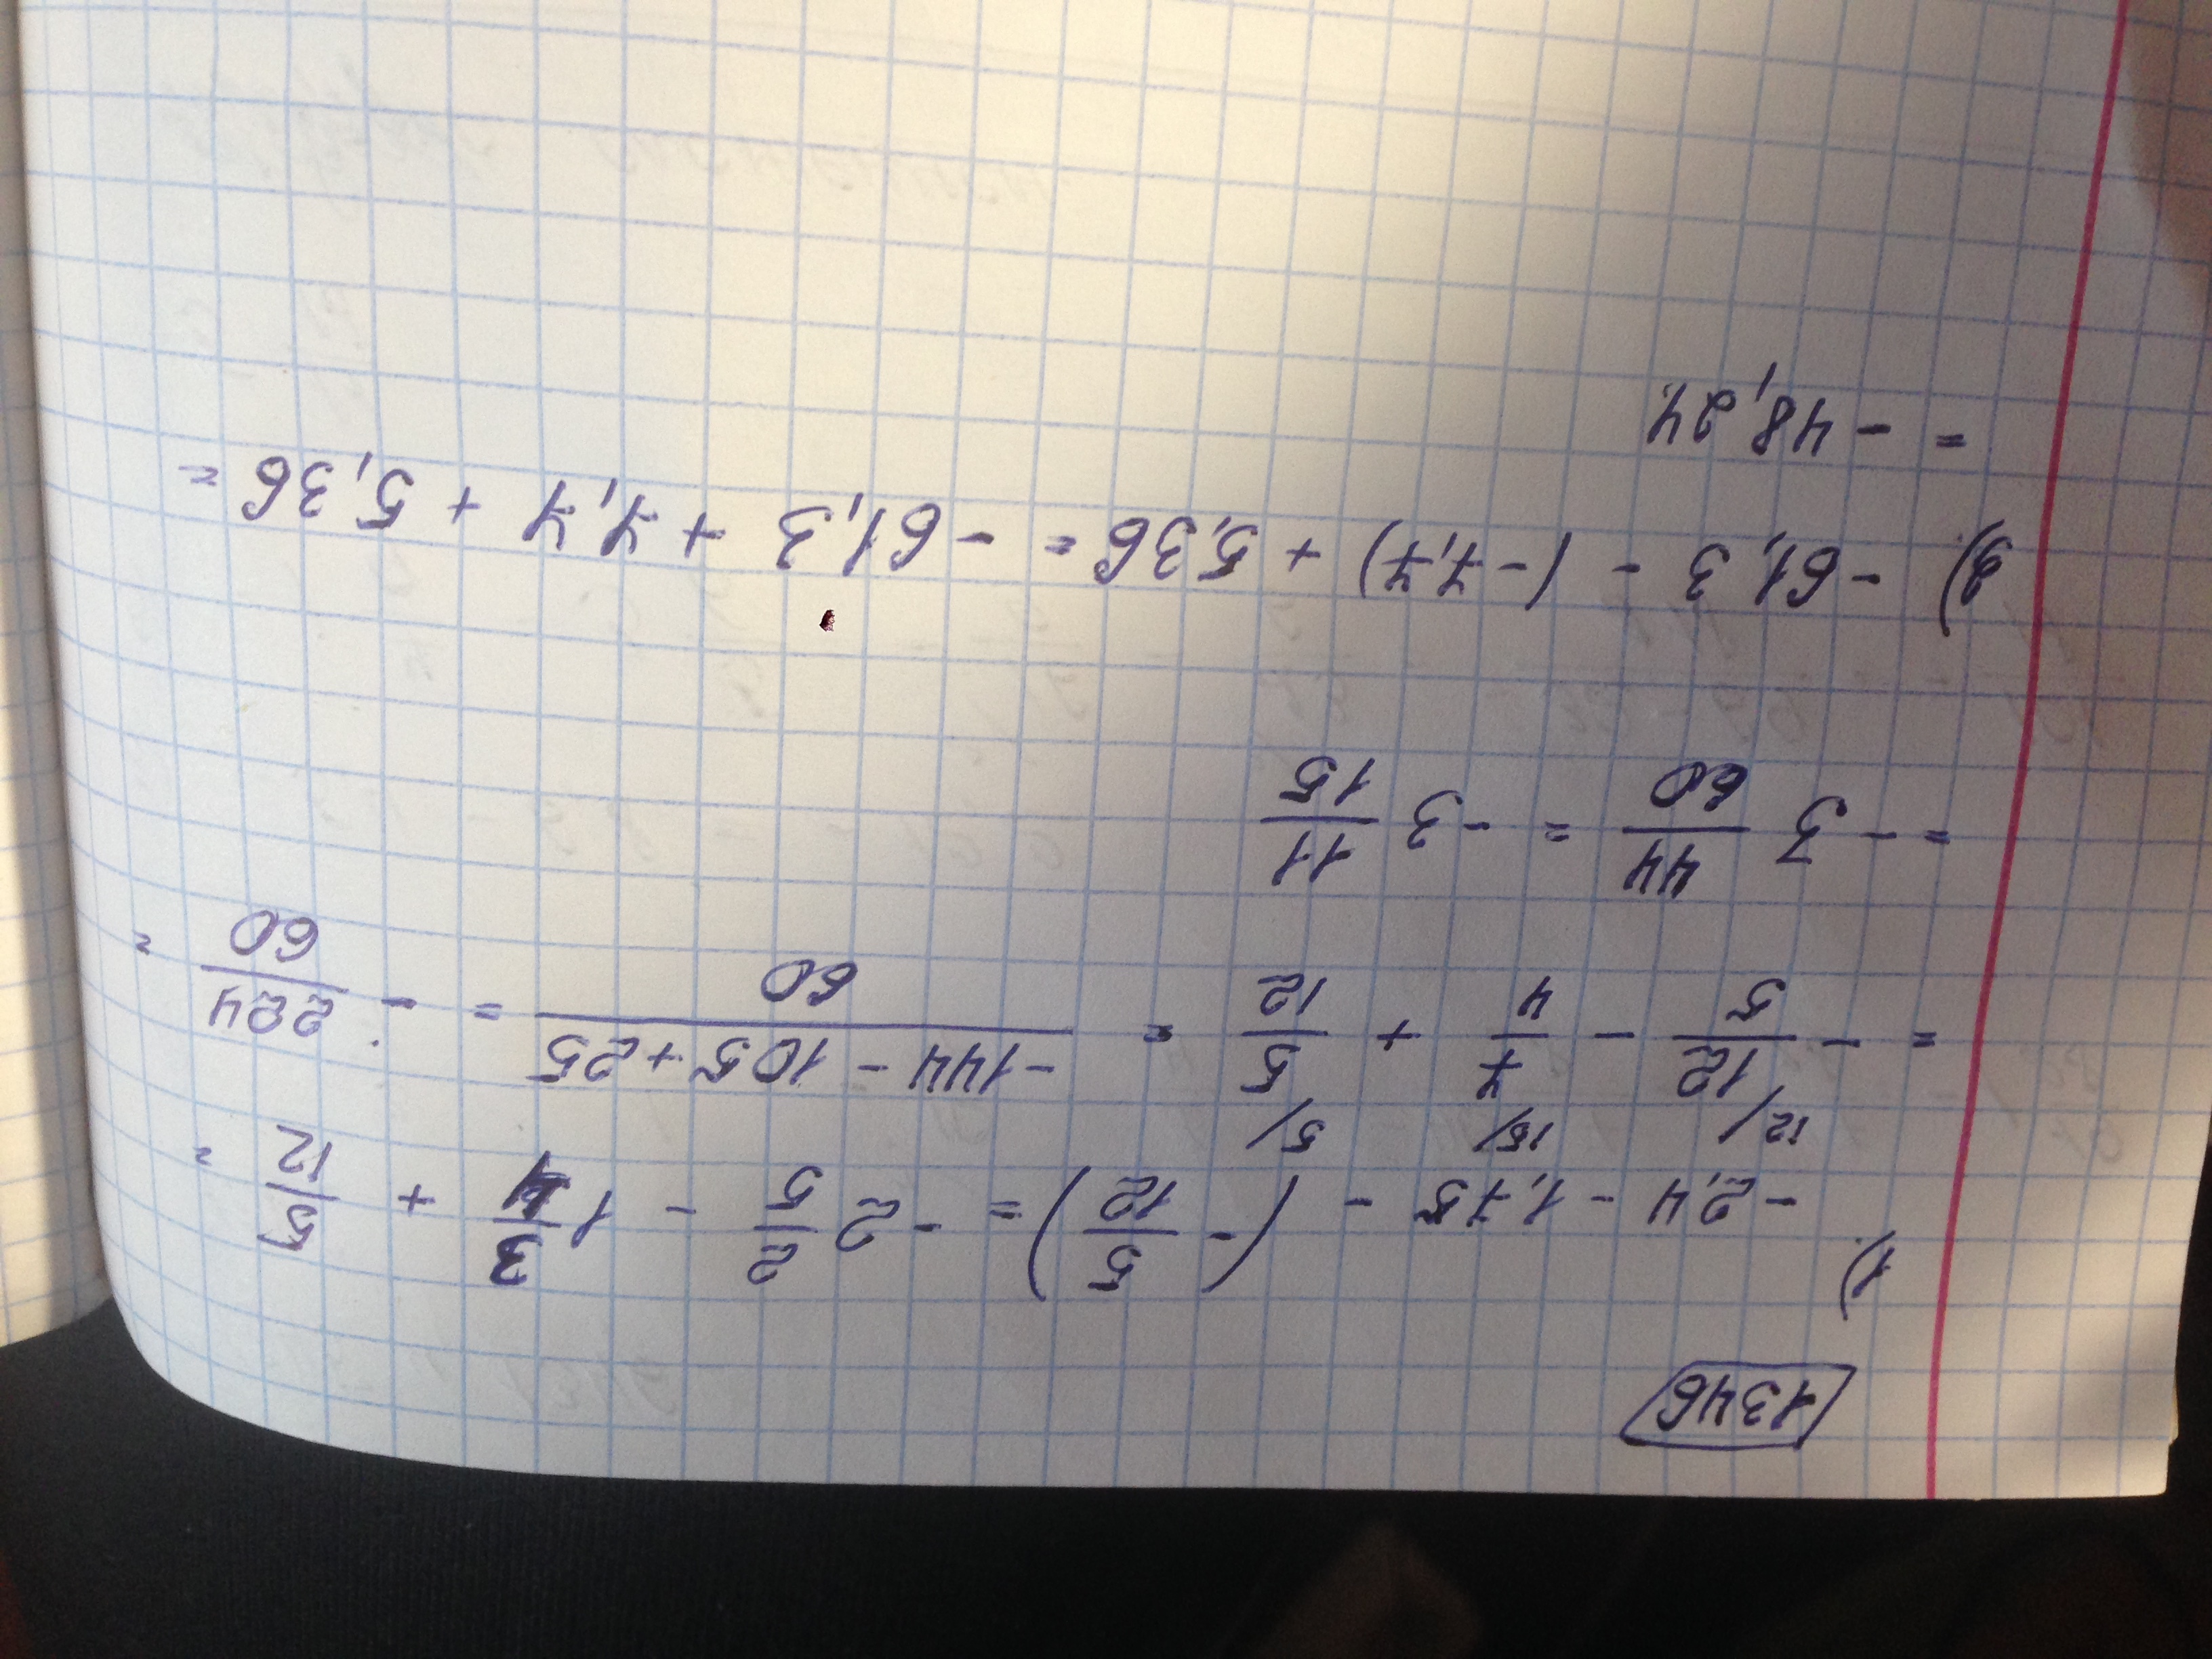 1346
1) -2,4 - 1,75 - (-5/12) = -2 2/5 - 1 3/4 + 5/12 =
12/ 15/ 5/
= - 12/5 - 7/4 + 5/12 = (-144 - 105 + 25)/60 = - 224/60 =
= - 3 44/60 = -3 11/15
2) -61,3 - (-7,7) + 5,36 = -61,3 + 7,7 + 5,36 =
= - 48,24.